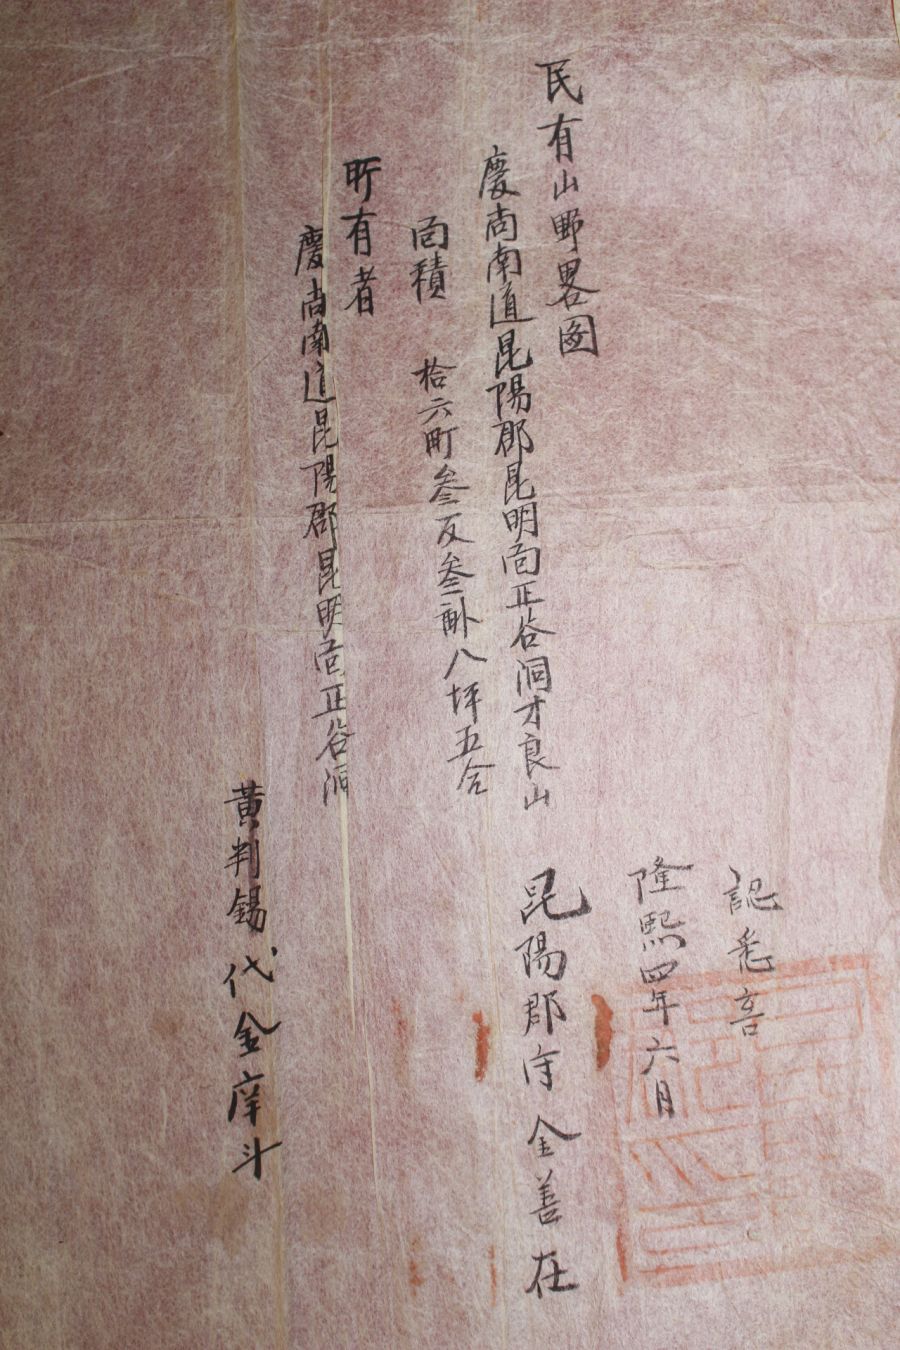 民有山野畧図
慶尚南道昆陽郡昆明面正谷洞才良山
面積 拾六町叁反叁畝八坪五合
所有者
慶尚南道昆陽郡昆明面正谷洞
黃判錫代金庠斗
認悉
隆熙四年六月
昆陽郡守金善在